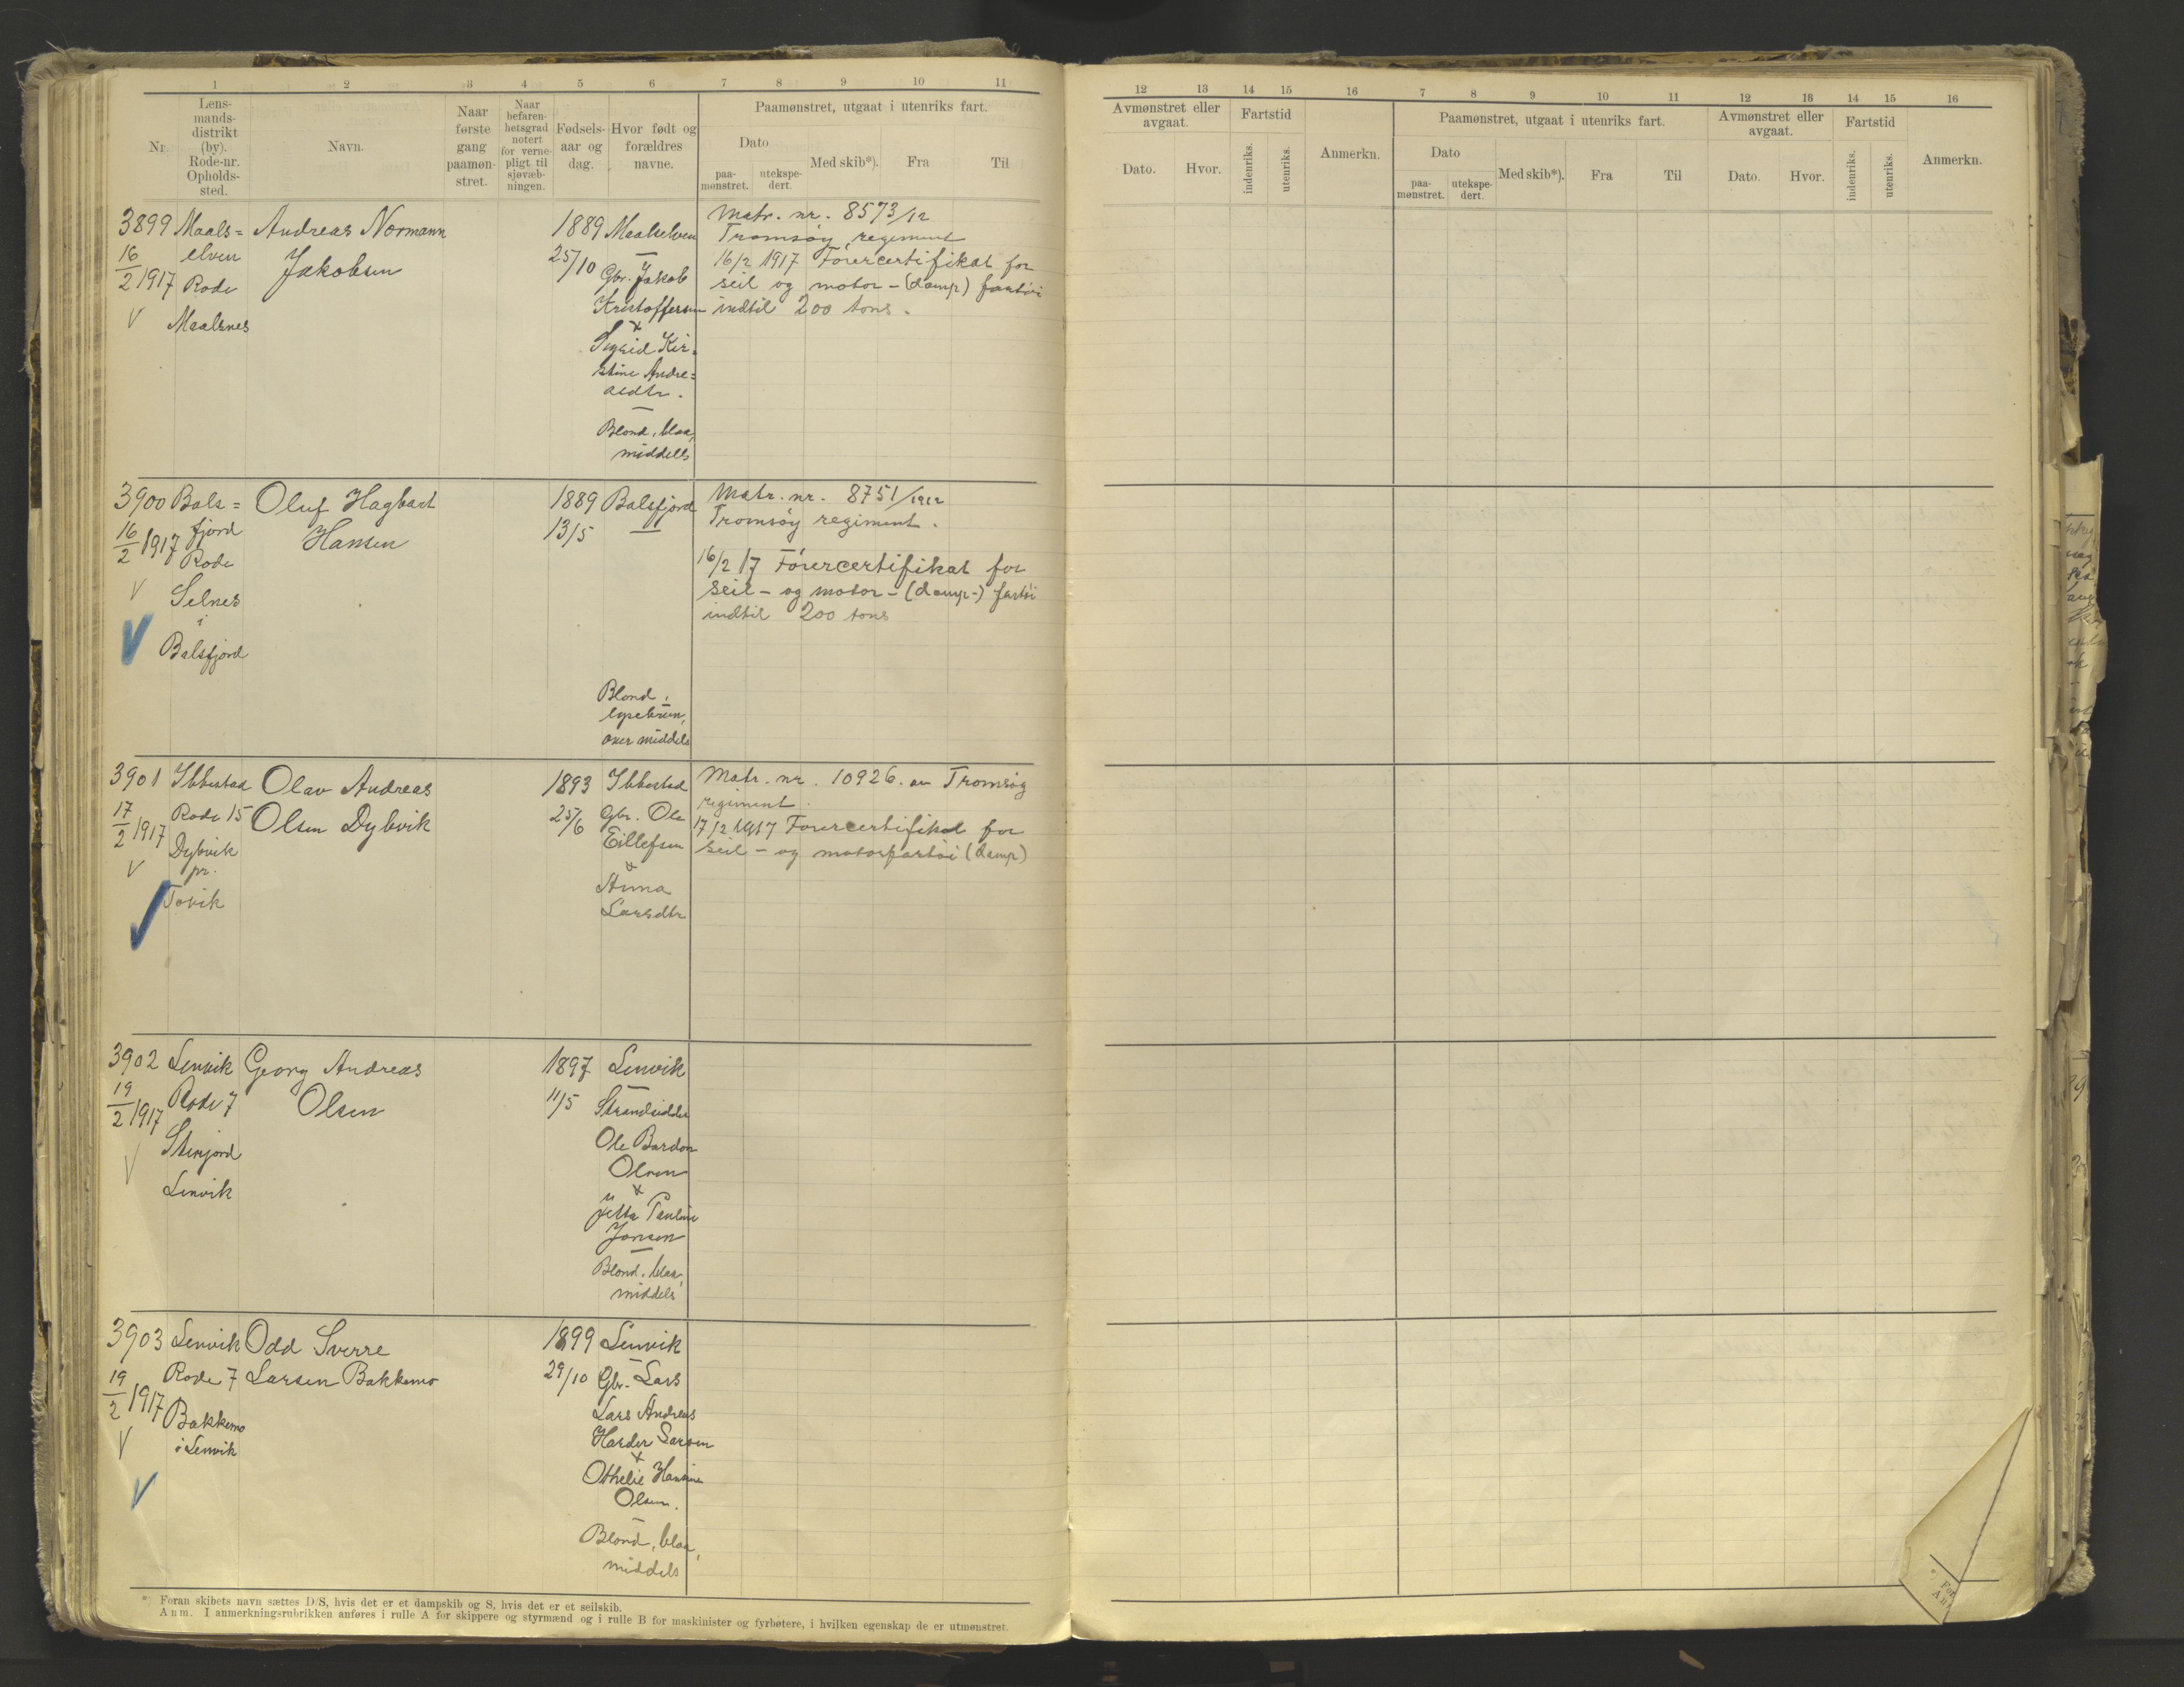 1 2 3 4 5 6 7 8 9 10 11
Nr. Lens-mands-distrikt (by). Rode-nr. Opholds-sted. Navn. Naar første gang paamøn-stret. Naar befaren-hetsgrad notert for verne-pligt til sjøvæb-ningen. Fødsels-aar og dag. Hvor født og forældres navne.
Paamønstret, utgaat i utenriks fart.
Dato Med skib*). Fra Til
paa-mønstret. utekspe-dert.
3899 Maals= Andreas Normann 1889 Maalselven Matr. nr. 8573/12
16/2 1917 elven Jakobsen 25/10 Tromsøy regiment
Rode Gbr. Jakob 16/2 1917 Førercertifikat for
V Maalsnes Kristoffersen seil og motor-(damp) fartøi
indtil 200 tons.
x
Sigrid Kir=
stine Andre=
aedtr.
Blond, blaa,
middels
3900 Bals= Oluf Hagbart 1889 Balsfjord Matr. nr. 8751/1912
16/2 1917 fjord Hansen 13/5 Tromsøy regiment.
Rode 16/2 17 Førercertifikat for
V Selnes seil- og motor-(damp-) fartøi
i indtil 200 tons
Balsfjord
Blond,
lysebrun,
over middels
3901 Ibbestad Olav Andreas 1893 Ibbestad Matr. nr. 10926. av Tromsøy
17/2 1917 Rode 15 Olsen Dybvik 25/6 Gbr. Ole regiment.
Dybvik Eillefsen 17/2 1917 Førercertifikat for
V pr. x seil- og motorfartøi (damp)
Tovik Anna
Larsdtr
3902 Lenvik Georg Andreas 1897 Lenvik
19/2 1917 Rode 7 Olsen 11/5 Strandsidder
Ole Bardon
V Olsen
Lenvik x
Jetta Pauline
Jonsen
Blond, blaa,
middels
3903 Lenvik Odd Sverre 1899 Lenvik
19/2 1917 Rode 7 Larsen Bakkemo 29/10 Gbr. Lars
Bakkemo Lars Andreas
V i Lenvik Harder Larsen
x
Othelie Hansine
Olsen.
Blond, blaa,
middels
*) Foran skibets navn sættes D/S, hvis det er et dampskib og S, hvis det er et seilskib.
Anm. I anmerkningsrubrikken anføres i rulle A for skippere og styrmænd og i rulle B for maskinister og fyrbøtere, i hvilken egenskap de er utmønstret.
12 13 14 15 16 7 8 9 10 11 12 13 14 15 16
Avmønstret eller avgaat. Fartstid Anmerkn. Paamønstret, utgaat i utenriks fart. Avmønstret eller avgaat. Fartstid Anmerkn.
Dato. Hvor. indenriks. utenriks. Dato Med skib*). Fra Til Dato. Hvor. indenriks. utenriks.
paa-mønstret. utekspe-dert.